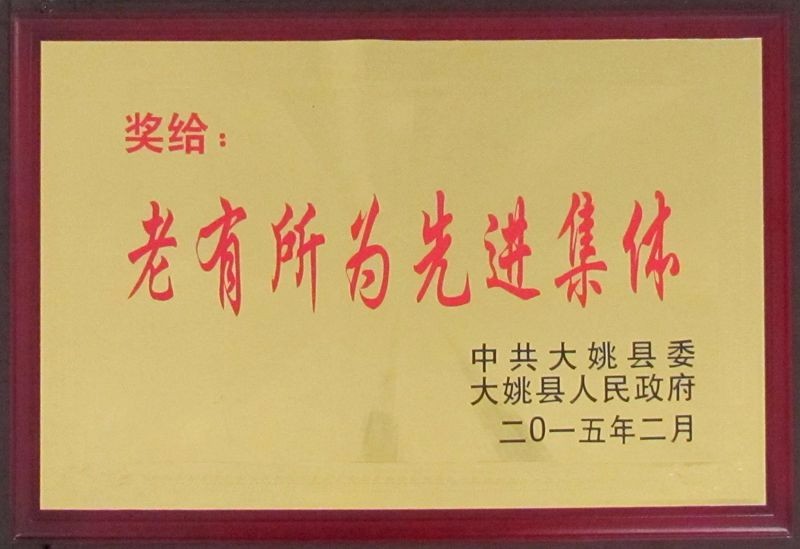 奖给：
老有所为先进集体
中共大姚县委
大姚县人民政府
二0一五年二月